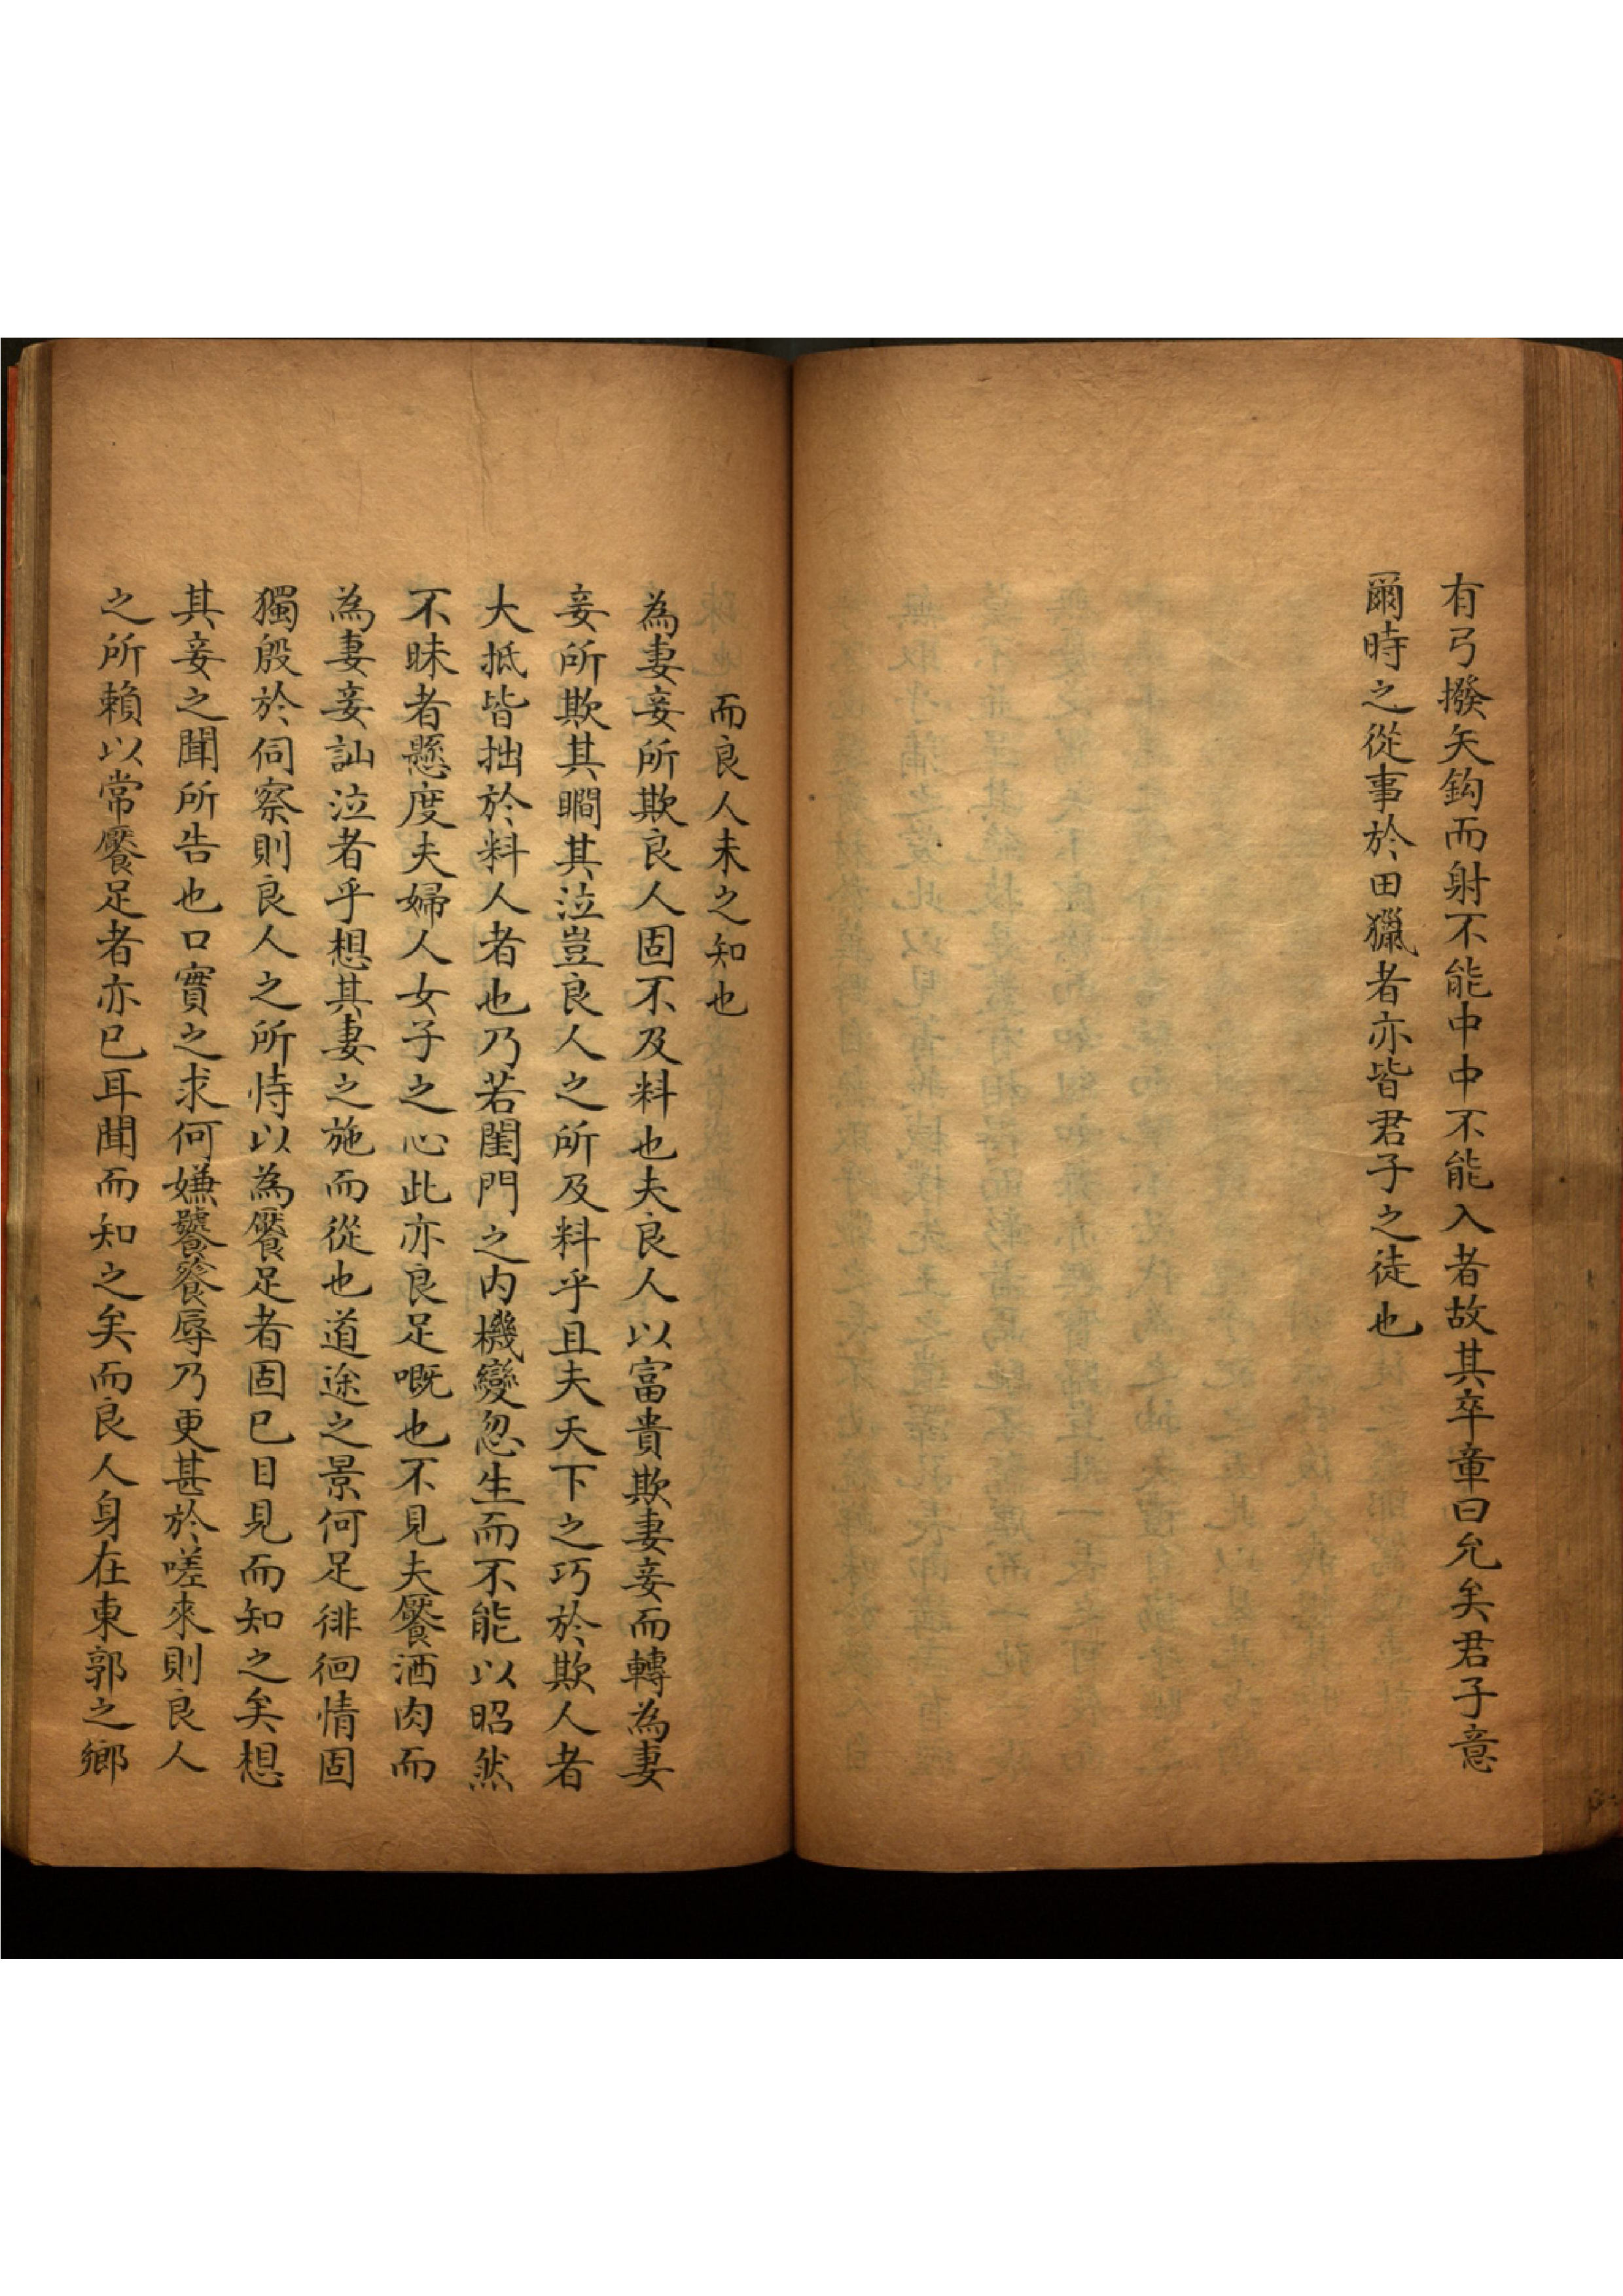 有弓撥矢鈎而射不能中中不能入者故其卒章曰允矣君子意
爾時之從事於田獵者亦皆君子之徒也
而良人未之知也
為妻妾所欺良人固不及料也夫良人以富貴欺妻妾而轉為妻
妾所欺其瞷其泣豈良人之所及料乎且夫天下之巧於欺人者
大抵皆拙於料人者也乃若閨門之內機變忽生而不能以昭然
不昧者懸度夫婦人女子之心此亦良足嘅也不見夫饜酒肉而
為妻妾訕泣者乎想其妻之施而從也道途之景何足徘徊情固
獨殷於伺察則良人之所恃以為饜足者固已目見而知之矣想
其妾之聞所告也口實之求何嫌饕餮辱乃更甚於嗟來則良人
之所賴以常饜足者亦已耳聞而知之矣而良人身在東郭之鄉